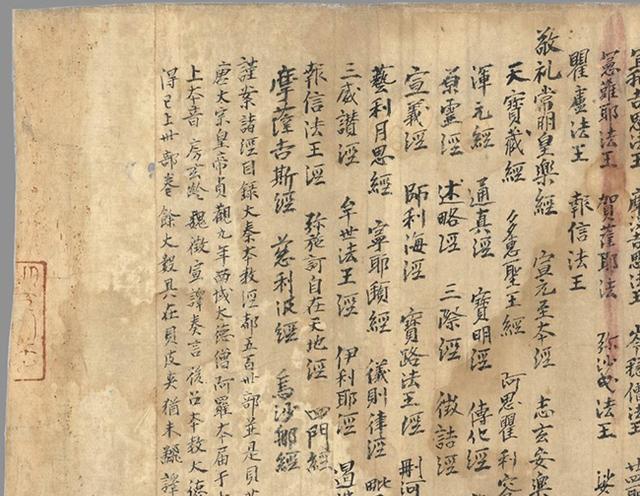 宜和吉思法王 摩没吉思法王 岑穩僧法王 廿四
憲難耶法王 賀薩耶法王 弥沙曳法王 娑
瞿盧法王 報信法王
敬礼常明皇樂經 宣元至本經 志玄安樂
天寶藏經 多惠聖王經 阿思瞿利容
渾元經 通真經 寶明經 傳化經
原靈經 述略經 三際經 徵詰經
宣義經 師利海經 寶路法王經 刪河
藝利月思經 寧耶頲經 儀則律經 毗
三威讚經 牟世法王經 伊利耶經 遏
報信法王經 弥施訶自在天地經 四門經
摩薩吉斯經 慈利波經 烏沙那經
謹案諸經目録大秦本教經都五百卅部並是貝
唐太宗皇帝貞觀九年西域大德僧阿羅本屆于
上本音房玄齡魏徵宣譯奏言後召本教大德
得已上卅部卷餘大數具在貝皮夾猶未翻譯